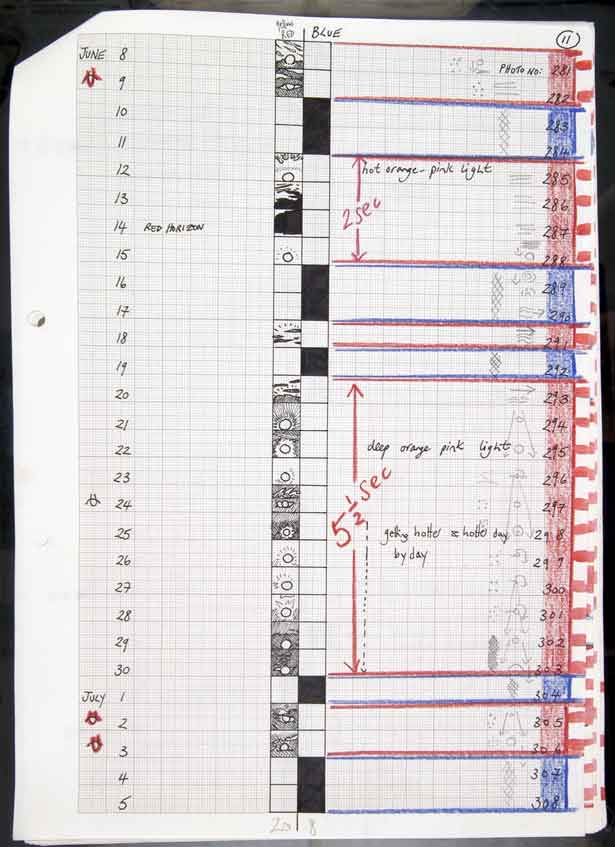 RED
BLUE
11
JUNE 8
PHOTO NO: 281
9
282
10
283
11
284
12
hot orange-pink light
285
13
2 sec
286
14
RED HORIZON
287
15
288
16
289
17
290
18
291
19
292
20
293
21
294
22
deep orange pink light
295
23
296
24
5 1/2 sec
297
25
getting hotter & hotter day
298
26
by day
299
27
300
28
301
29
302
30
303
JULY 1
304
2
305
3
306
4
307
5
308
20
8